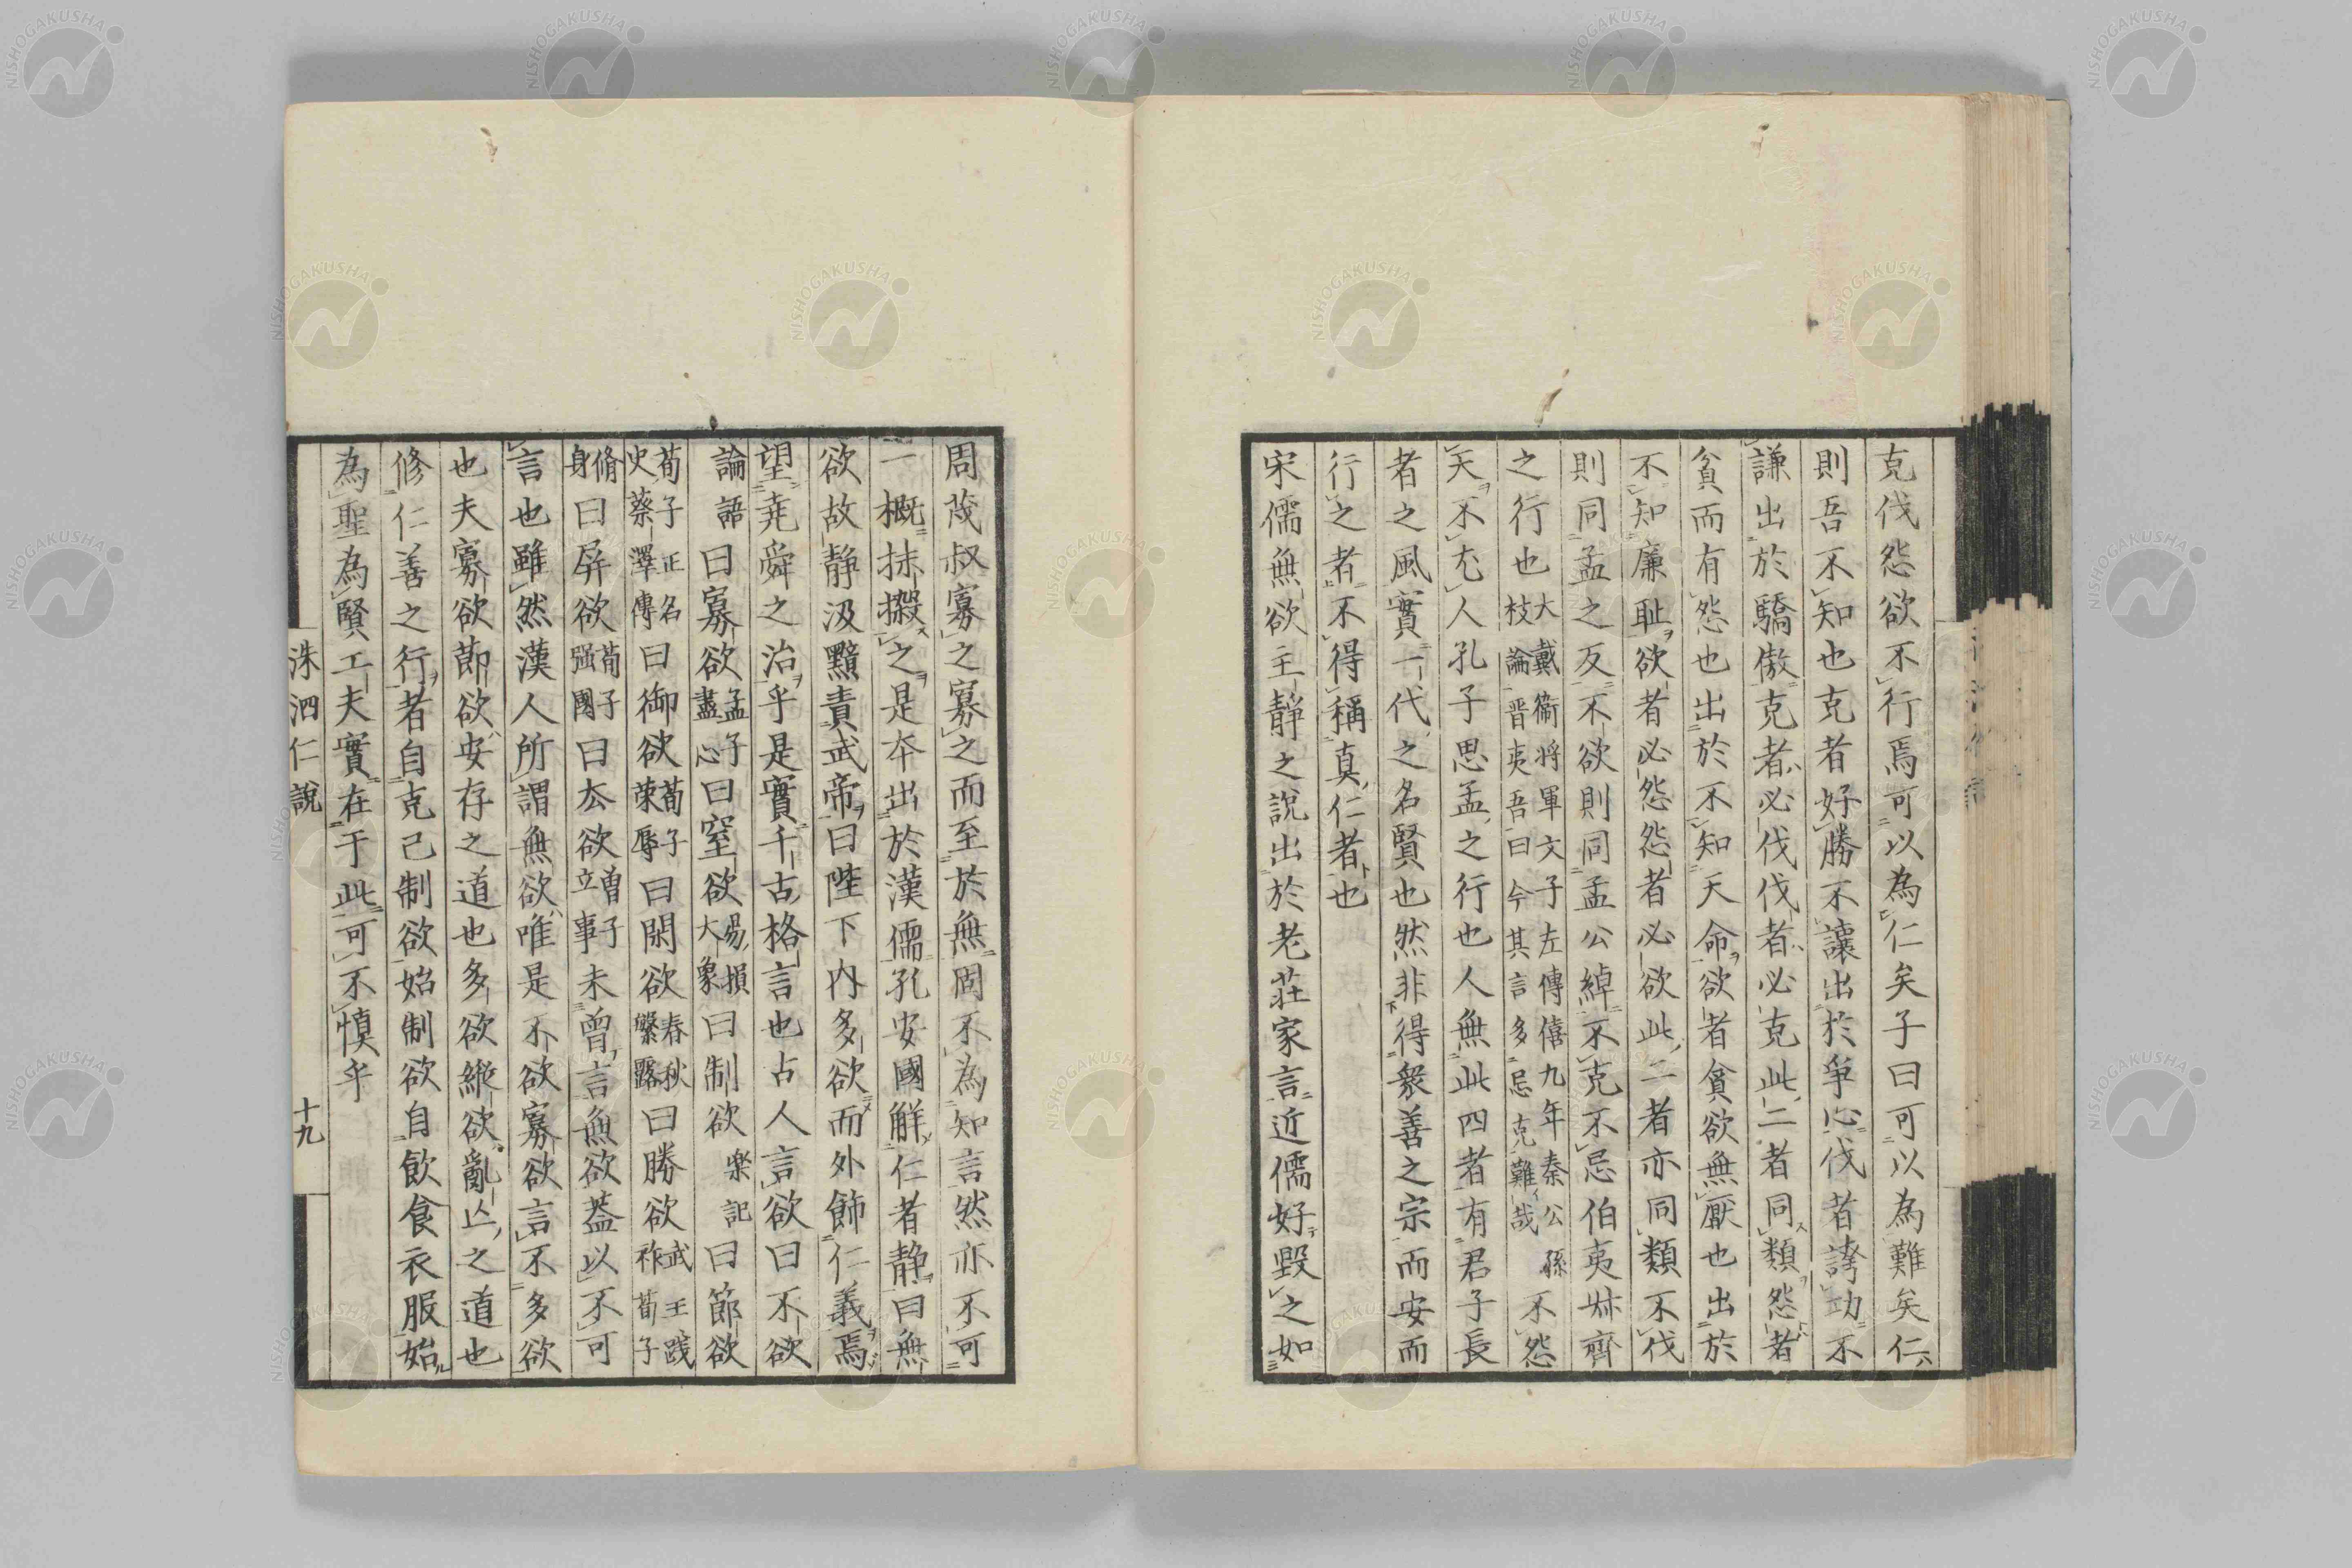 克伐怨欲不行焉可以為仁矣子曰可以為難矣仁
則吾不知也克者好勝不讓出於爭心伐者誇功不
謙出於驕傲克者必伐伐者必克此二者同類怨者
貧而有怨也出於不知天命欲者貪欲無厭也出於
不知廉耻欲者必怨怨者必欲此二者亦同類不伐
則同孟之反不欲則同孟公綽不克不忌伯夷叔齊
之行也大戴衞将軍文子左傳僖九年秦公孫枝論晋夷吾曰今其言多忌克難哉不怨
天不尤人孔子思孟之行也人無此四者有君子長
者之風實一代之名賢也然非得衆善之宗而安而
行之者不得稱真仁者也
宋儒無欲主靜之說出於老莊家言近儒好毀之如
周茂叔寡之寡之而至於無固不為知言然亦不可
一概抹摋之是夲出於漢儒孔安國解仁者静曰無
欲故静汲黯責武帝曰陛下内多欲而外飾仁義焉
望尭舜之治乎是實千古格言也古人言欲曰不欲
論語曰寡欲孟子盡心曰窒欲易損大象曰制欲楽記曰節欲
荀子正名史蔡澤傳曰御欲荀子榮辱曰閑欲春秋繁露曰勝欲武王踐祚荀子
脩身曰屏欲荀子强國曰厺欲曽子立事未曽言無欲葢以不可
言也雖然漢人所謂無欲唯是不欲寡欲言不多欲
也夫寡欲節欲安存之道也多欲縱欲亂亾之道也
修仁善之行者自克己制欲始制欲自飲食衣服始
為聖為賢工夫實在于此可不慎乎
洙泗仁說
十九
NISHOGAKUSHA